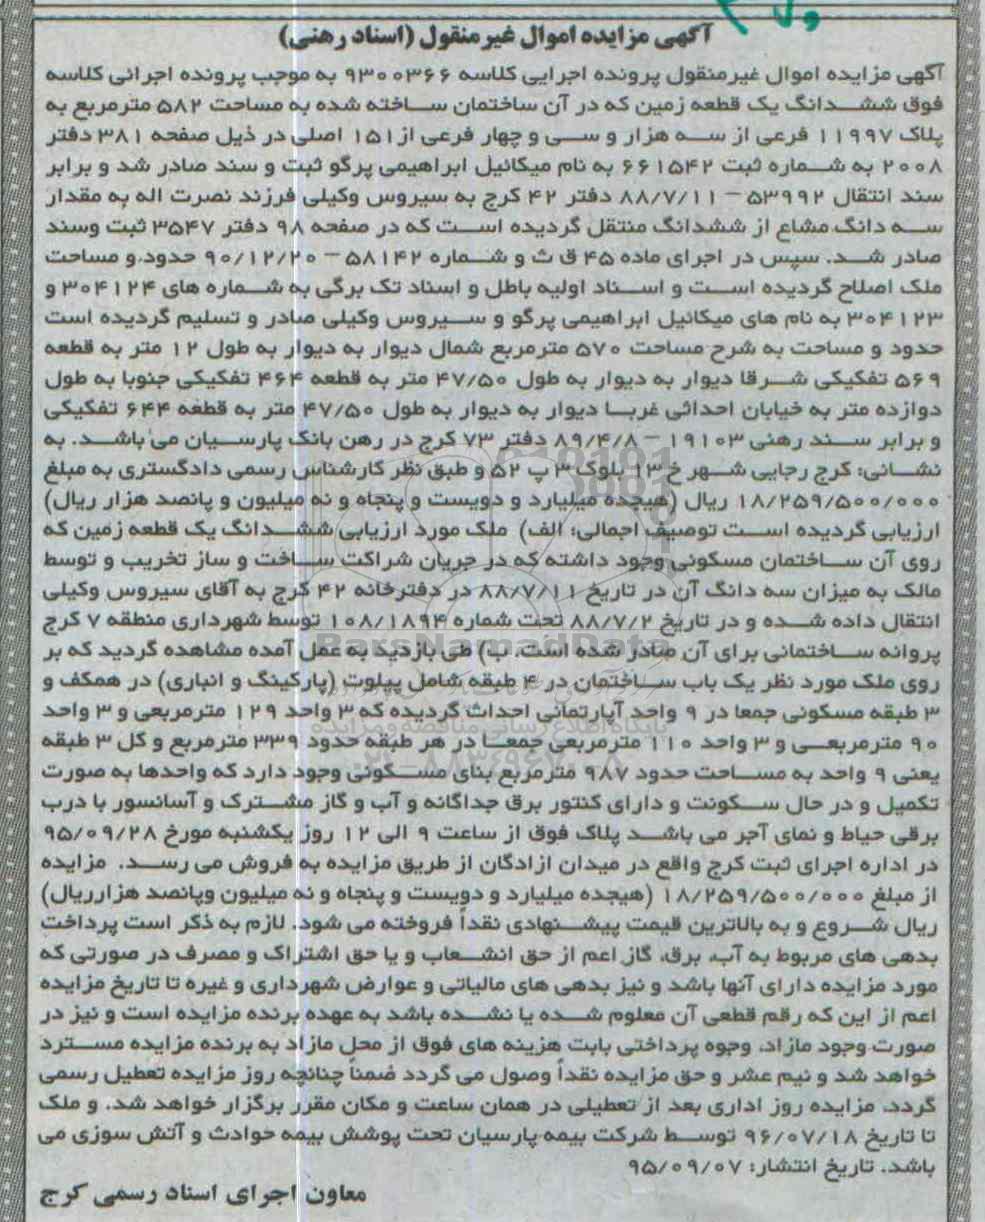 آگهی مزایده اموال غیرمنقول (اسناد رهنی)
آگهی مزایده اموال غیرمنقول پرونده اجرایی کلاسه ۹۳۰۰۳۶۶ به موجب پرونده اجرائی کلاسه
فوق ششدانگ یک قطعه زمین که در آن ساختمان ساخته شده به مساحت ۵۸۲ مترمربع به
پلاک ۱۱۹۹۷ فرعی از سه هزار و سی و چهار فرعی از ۱۵۱ اصلی در ذیل صفحه ۳۸۱ دفتر
۲۰۰۸ به شماره ثبت ۶۶۱۵۴۲ به نام میکائیل ابراهیمی پرگو ثبت و سند صادر شد و برابر
سند انتقال ۵۳۹۹۲ – ۸۸/۷/۱۱ دفتر ۴۲ کرج به سیروس وکیلی فرزند نصرت اله به مقدار
سه دانگ مشاع از ششدانگ منتقل گردیده است که در صفحه ۹۸ دفتر ۳۵۴۷ ثبت وسند
صادر شد. سپس در اجرای ماده ۴۵ ق ث و شماره ۵۸۱۴۲ – ۹۰/۱۲/۲۰ حدود و مساحت
ملک اصلاح گردیده است و اسناد اولیه باطل و اسناد تک برگی به شماره های ۳۰۴۱۲۴ و
۳۰۴۱۲۳ به نام های میکائیل ابراهیمی پرگو و سیروس وکیلی صادر و تسلیم گردیده است
حدود و مساحت به شرح مساحت ۵۷۰ مترمربع شمال دیوار به دیوار به طول ۱۲ متر به قطعه
۵۶۹ تفکیکی شرقا دیوار به دیوار به طول ۴۷/۵۰ متر به قطعه ۴۶۴ تفکیکی جنوبا به طول
دوازده متر به خیابان احداثی غربا دیوار به دیوار به طول ۴۷/۵۰ متر به قطعه ۶۴۴ تفکیکی
و برابر سند رهنی ۱۹۱۰۳ – ۸۹/۴/۸ دفتر ۷۳ کرج در رهن بانک پارسیان می باشد. به
نشانی: کرج رجایی شهر خ ۱۳ بلوک ۳ پ ۵۲ و طبق نظر کارشناس رسمی دادگستری به مبلغ
۱۸/۲۵۹/۵۰۰/۰۰۰ ریال (هیجده میلیارد و دویست و پنجاه و نه میلیون و پانصد هزار ریال)
ارزیابی گردیده است توصیف اجمالی: الف) ملک مورد ارزیابی ششدانگ یک قطعه زمین که
روی آن ساختمان مسکونی وجود داشته که در جریان شراکت ساخت و ساز تخریب و توسط
مالک به میزان سه دانگ آن در تاریخ ۸۸/۷/۱۱ در دفترخانه ۴۲ کرج به آقای سیروس وکیلی
انتقال داده شده و در تاریخ ۸۸/۷/۲ تحت شماره ۱۰۸/۱۸۹۴ توسط شهرداری منطقه ۷ کرج
پروانه ساختمانی برای آن صادر شده است. ب) طی بازدید به عمل آمده مشاهده گردید که بر
روی ملک مورد نظر یک باب ساختمان در ۴ طبقه شامل پیلوت (پارکینگ و انباری) در همکف و
۳ طبقه مسکونی جمعا در ۹ واحد آپارتمانی احداث گردیده که ۳ واحد ۱۲۹ مترمربعی و ۳ واحد
۹۰ مترمربعی و ۳ واحد ۱۱۰ مترمربعی جمعا در هر طبقه حدود ۳۳۹ مترمربع و کل ۳ طبقه
یعنی ۹ واحد به مساحت حدود ۹۸۷ مترمربع بنای مسکونی وجود دارد که واحدها به صورت
تکمیل و در حال سکونت و دارای کنتور برق جداگانه و آب و گاز مشترک و آسانسور با درب
برقی حیاط و نمای آجر می باشد پلاک فوق از ساعت ۹ الی ۱۲ روز یکشنبه مورخ ۹۵/۰۹/۲۸
در اداره اجرای ثبت کرج واقع در میدان ازادگان از طریق مزایده به فروش می رسد. مزایده
از مبلغ ۱۸/۲۵۹/۵۰۰/۰۰۰ (هیجده میلیارد و دویست و پنجاه و نه میلیون وپانصد هزارریال)
ریال شروع و به بالاترین قیمت پیشنهادی نقداً فروخته می شود. لازم به ذکر است پرداخت
بدهی های مربوط به آب، برق، گاز اعم از حق انشعاب و یا حق اشتراک و مصرف در صورتی که
مورد مزایده دارای آنها باشد و نیز بدهی های مالیاتی و عوارض شهرداری و غیره تا تاریخ مزایده
اعم از این که رقم قطعی آن معلوم شده یا نشده باشد به عهده برنده مزایده است و نیز در
صورت وجود مازاد، وجوه پرداختی بابت هزینه های فوق از محل مازاد به برنده مزایده مسترد
خواهد شد و نیم عشر و حق مزایده نقداً وصول می گردد ضمناً چنانچه روز مزایده تعطیل رسمی
گردد، مزایده روز اداری بعد از تعطیلی در همان ساعت و مکان مقرر برگزار خواهد شد. و ملک
تا تاریخ ۹۶/۰۷/۱۸ توسط شرکت بیمه پارسیان تحت پوشش بیمه حوادث و آتش سوزی می
باشد. تاریخ انتشار: ۹۵/۰۹/۰۷
معاون اجرای اسناد رسمی کرج
ParsNamadData
پایگاه اطلاع رسانی مناقصه و مزایده